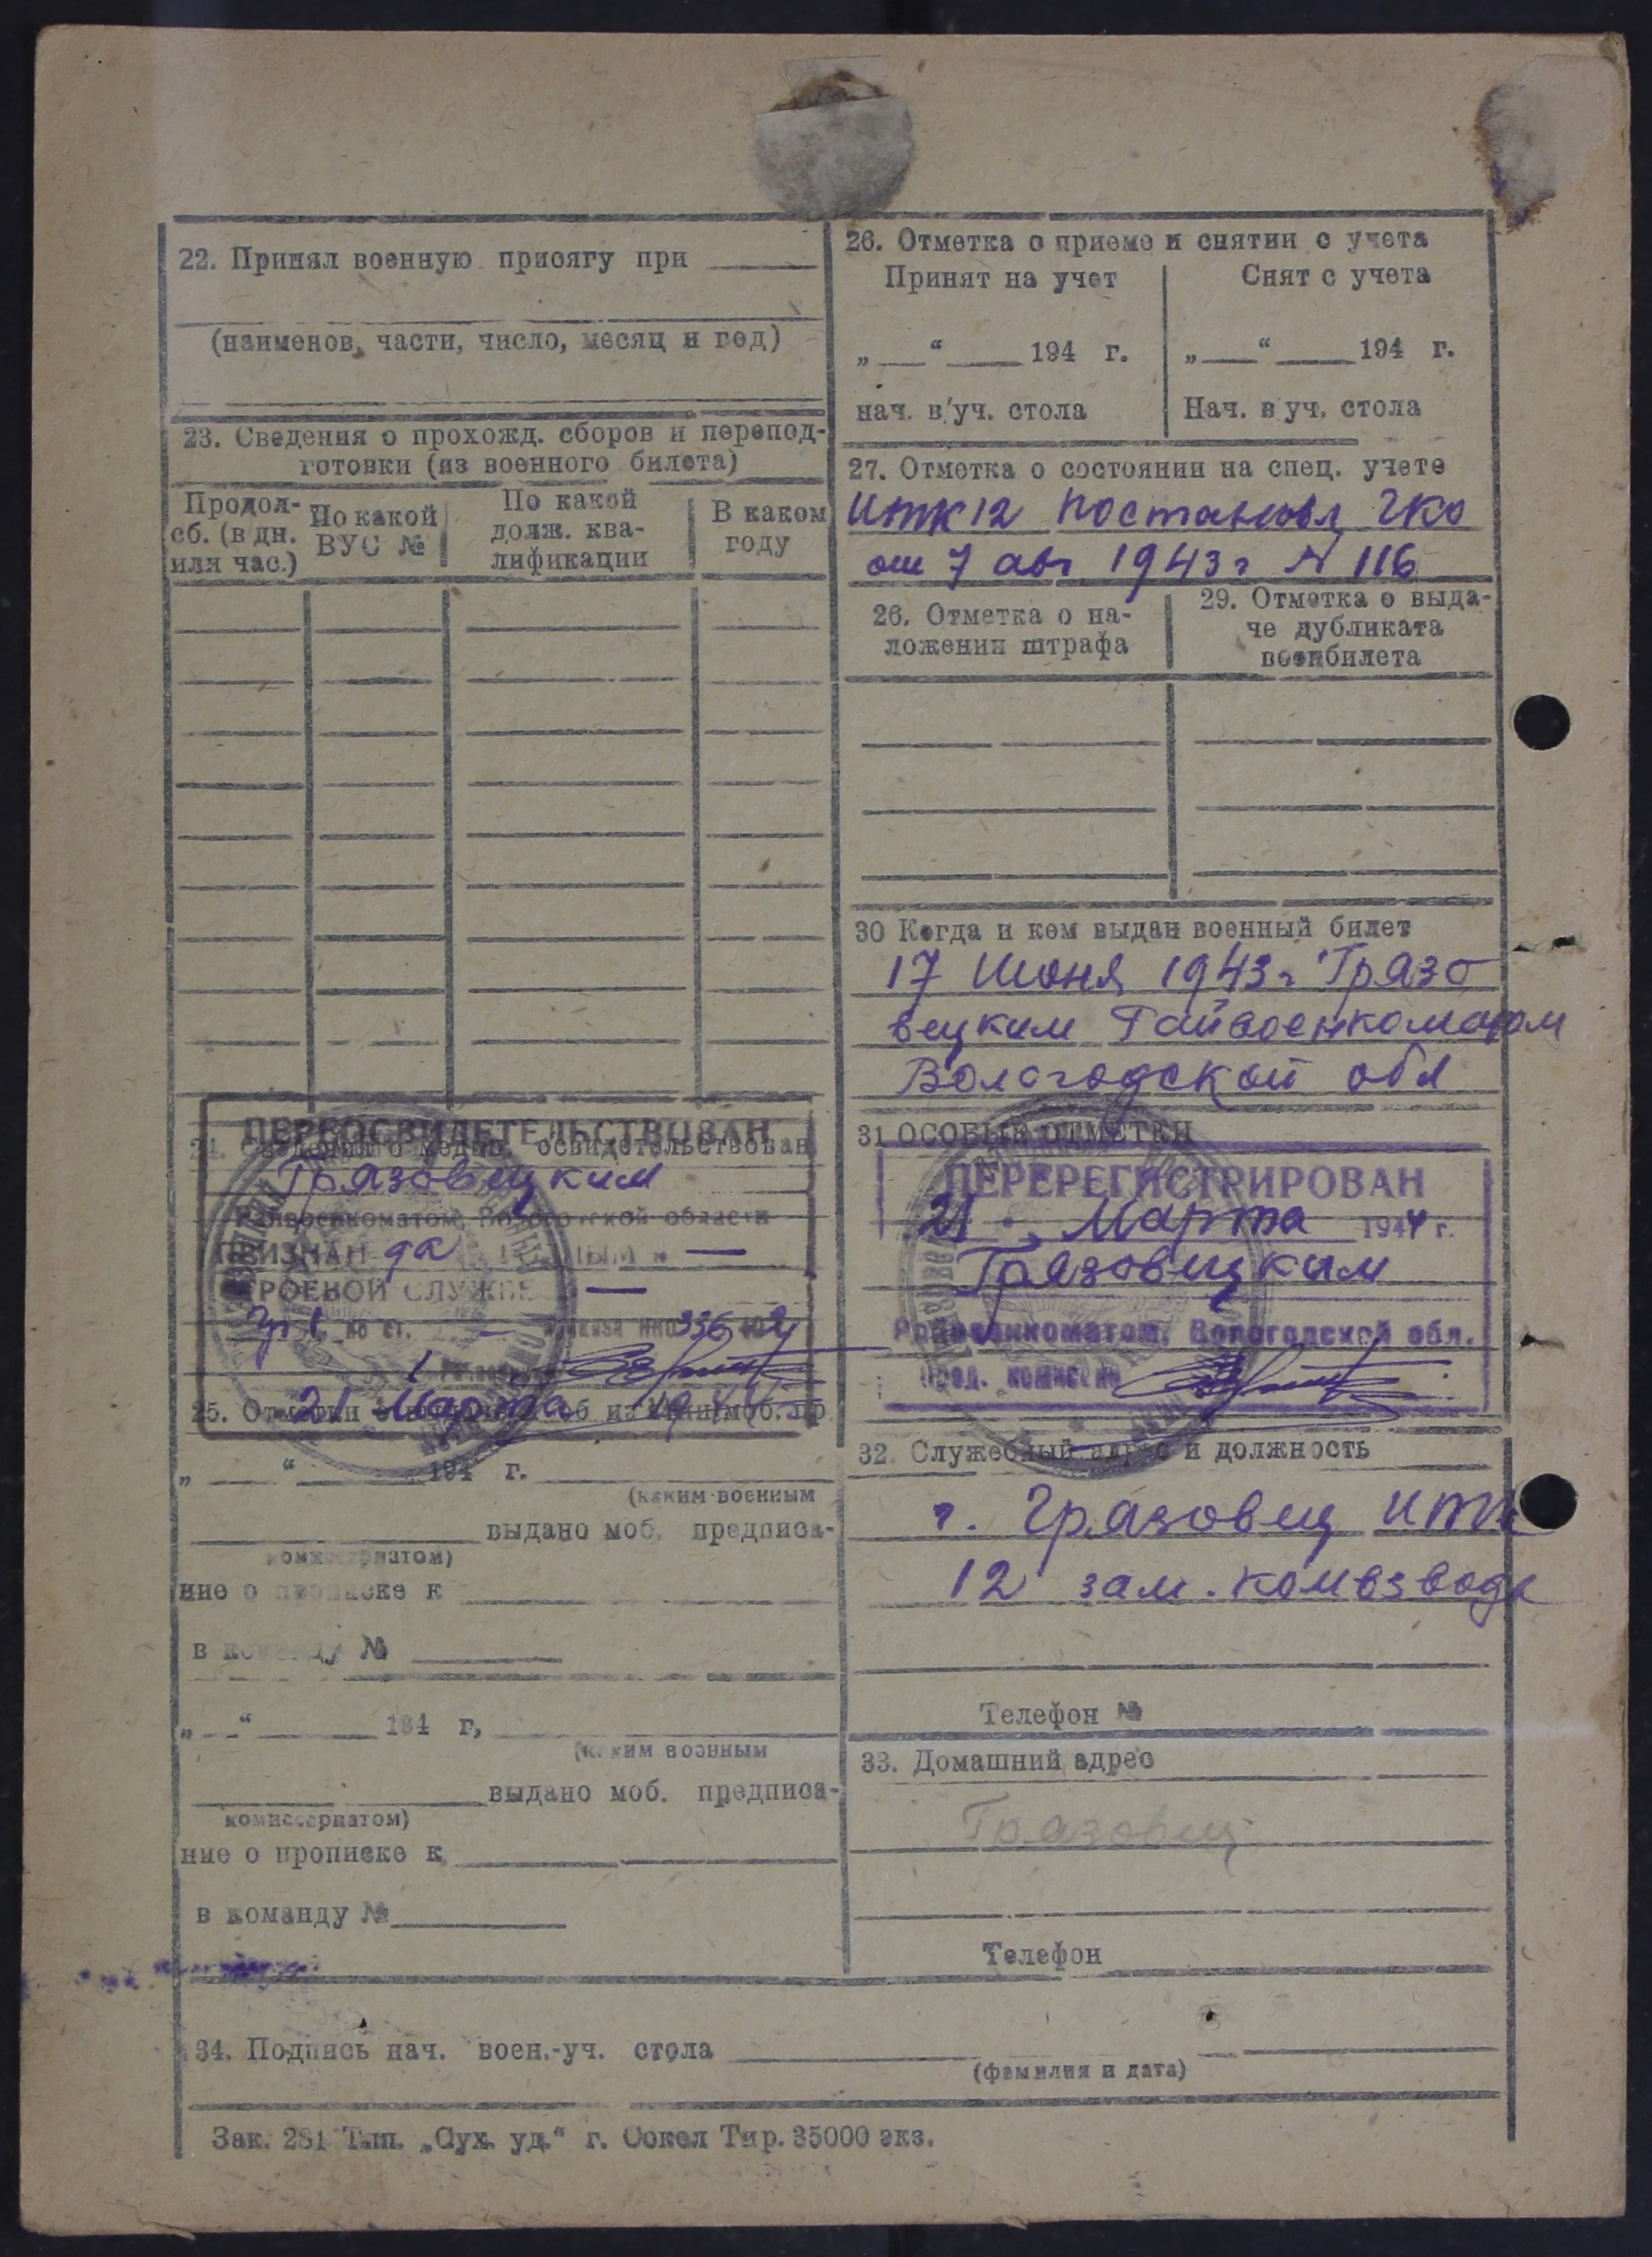 22. Принял военную присягу при
(наименов. части, число, месяц и год)
23. Сведения о прохожд. сборов и перепод-
готовки (из военного билета)
Продол-
сб. (в дн.
или час.)
По какой
ВУС №
По какой
долж. ква-
лификации
В каком
году
ПЕРЕОСВИДЕТЕЛЬСТВОВАН
24. Сведения о медиц. освидетельствован
Грязовецким
Райвоенкоматом, Вологодской области
ПРИЗНАН да ГОДНЫМ к —
СТРОЕВОЙ СЛУЖБЕ —
по ст. — приказа НКО 336
21 Марта 1944
25. Отметки
„ “ 194 г.
(каким военным
выдано моб. предписа-
комиссариатом)
ние о прописке к
в команду №
„ “ 194 г,
(каким военным
выдано моб. предписа-
комиссариатом)
ние о прописке к
в команду №
26. Отметка о приеме и снятии с учета
Принят на учет
„ “ 194 г.
нач. в уч. стола
Снят с учета
„ “ 194 г.
Нач. в уч. стола
27. Отметка о состоянии на спец. учете
ИТК 12 Постановл ГКО
от 7 авг 1943 г N 116
26. Отметка о на-
ложении штрафа
29. Отметка о выда-
че дубликата
военбилета
30 Когда и кем выдан военный билет
17 Июня 1943 г Грязо
вецким Райвоенкоматом
Вологодской обл
31 ОСОБЫЕ ОТМЕТКИ
ПЕРЕРЕГИСТРИРОВАН
21 Марта 1944 г.
Грязовецким
Райвоенкоматом, Вологодской обл.
Пред. комиссии
32. Служебный адрес и должность
г. Грязовец ИТК
12 зам. комвзвода
Телефон №
33. Домашний адрес
Грязовец
Телефон
34. Подпись нач. воен.-уч. стола
(фамилия и дата)
Зак. 281 Тип. „Сух. уд.“ г. Сокол Тир. 35000 экз.